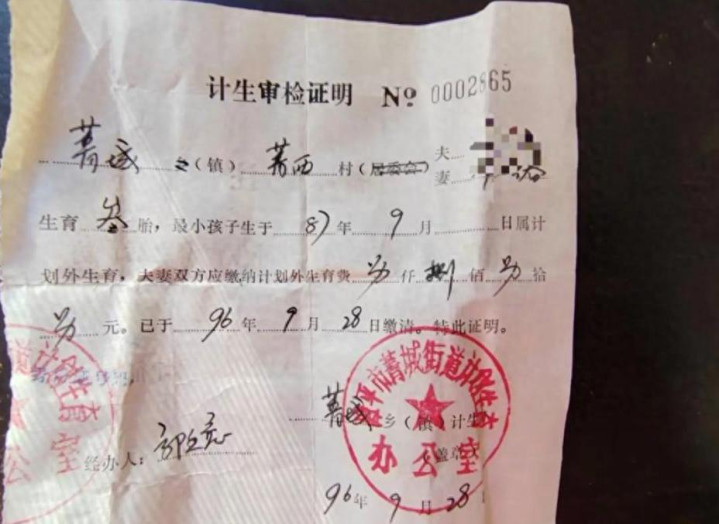 计生审检证明 № 0002865
菁城 乡(镇) 菁西 村(居委会) 夫
妻
生育 叁 胎，最小孩子生于 87 年 9 月 日属计
划外生育，夫妻双方应缴纳计划外生育费 仟 捌 佰 拾
元。已于 96 年 9 月 28 日缴清。特此证明。
菁城 乡(镇)计生
经办人：
(盖章)
96年 9 月 28
平市菁城街道计划生育
办公室
道计划生育
公室